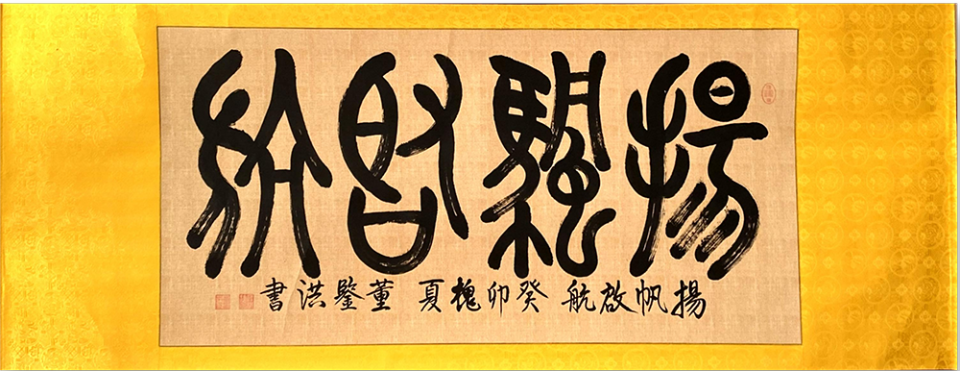 揚帆啟航
揚帆啟航 癸卯槐夏 董鑒洪書